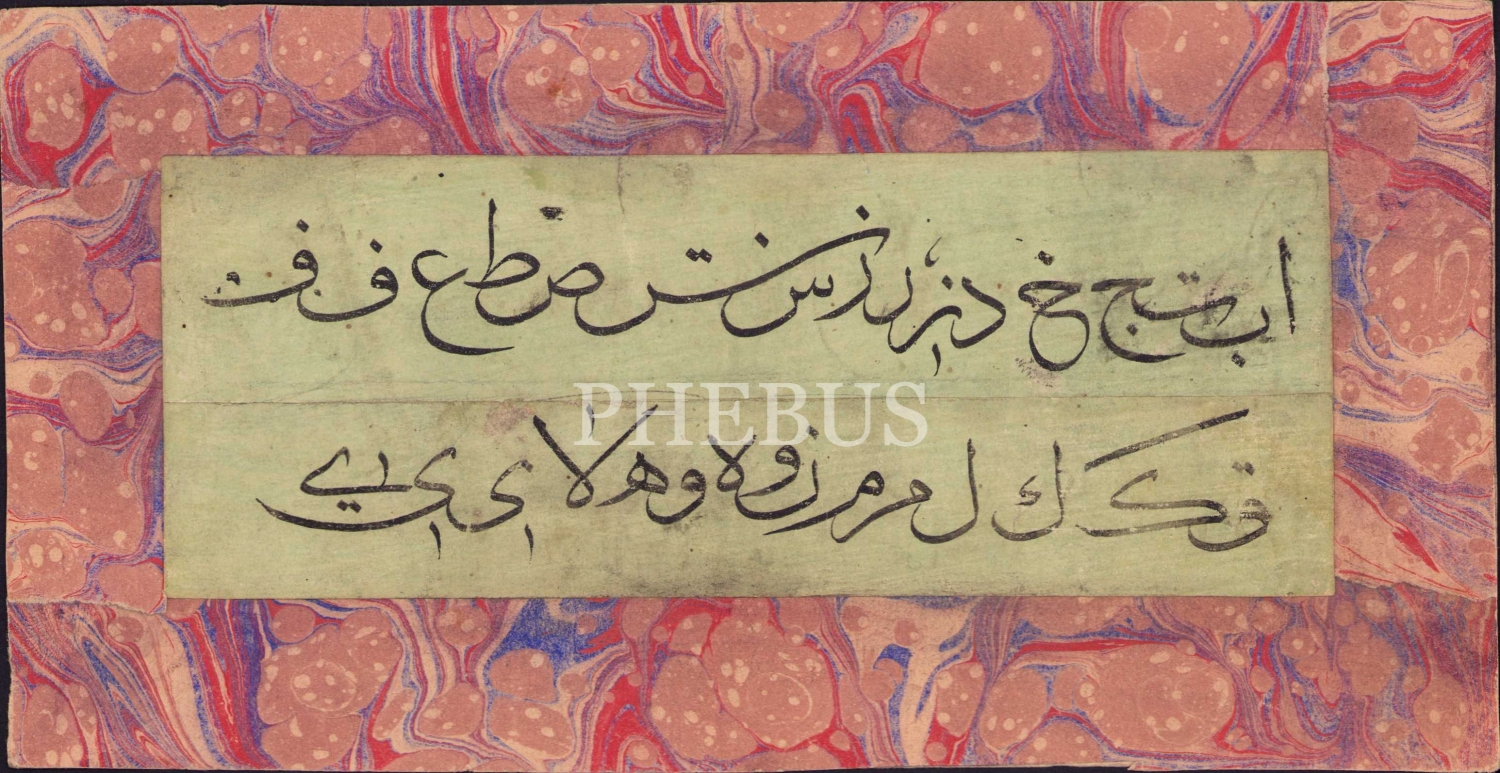 ا ب ت ج خ د ذ ر ر ز س ش ص ط ع ف ف
PHEBUS
ق ك ك ل م م ن و ه و ه لا ى ى ي